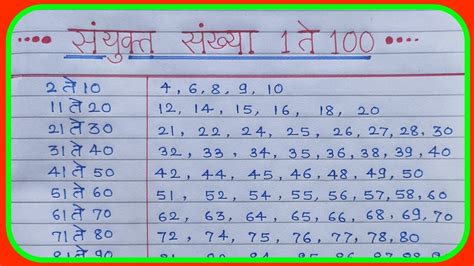 संयुक्त संख्या 1 ते 100
2 ते 10 4, 6, 8, 9, 10
11 ते 20 12, 14, 15, 16, 18, 20
21 ते 30 21, 22, 24, 25, 26, 27, 28, 30
31 ते 40 32, 33, 34, 35, 36, 38, 39, 40
41 ते 50 42, 44, 45, 46, 48, 49, 50
51 ते 60 51, 52, 54, 55, 56, 57, 58, 60
61 ते 70 62, 63, 64, 65, 66, 68, 69, 70
71 ते 80 72, 74, 75, 76, 77, 78, 80